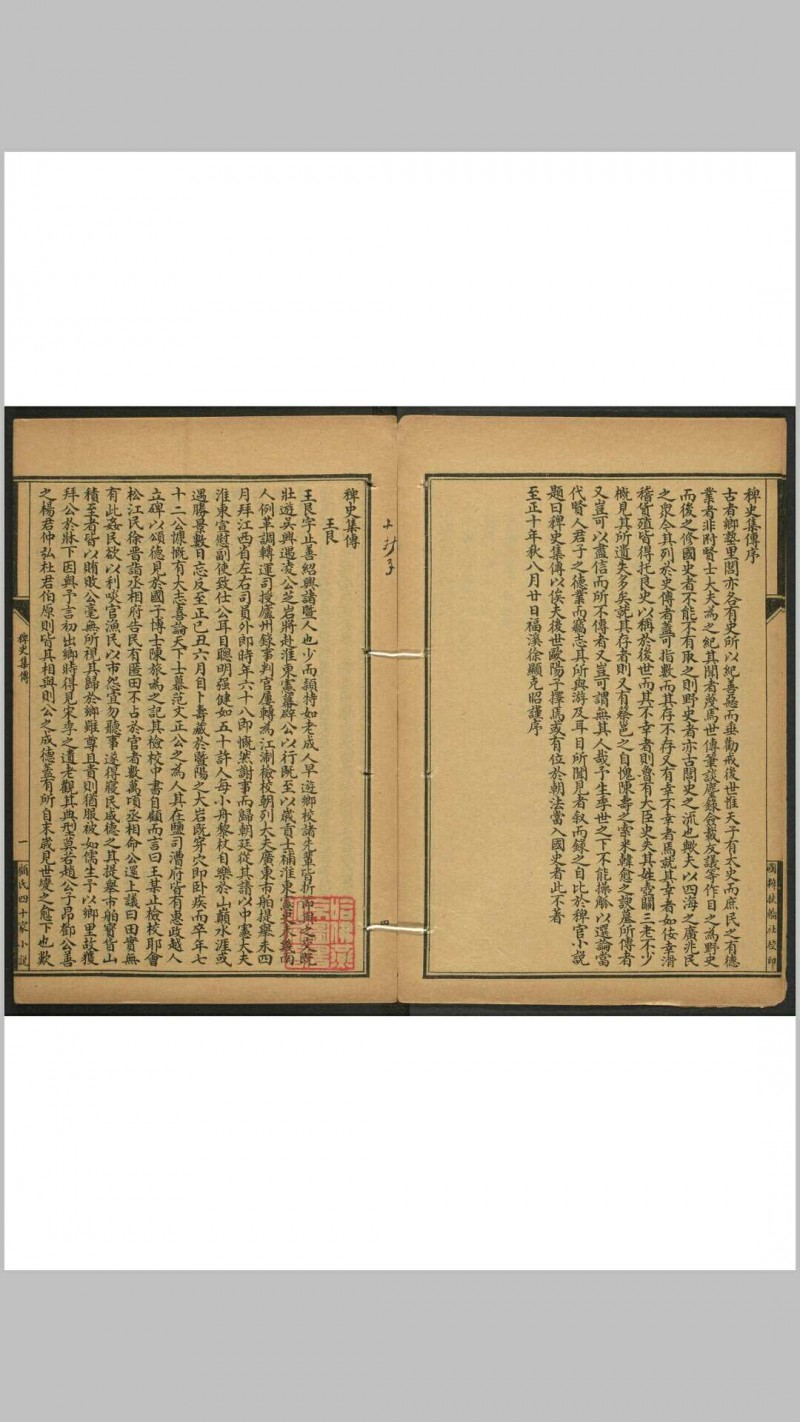 稗史集傳序
古者鄉塾里閭亦各有史所以紀善惡而垂勸戒後世惟天子有太史而庶民之有德
業者非附賢士大夫為之紀其聞者蔑焉世傳筆談麈錄僉載友議等作目之為野史
而後之修國史者不能不有取之則野史者亦古閭史之流也歟夫以四海之廣兆民
之眾今其列於史傳者蓋可指數而其存不存又有幸不幸者焉就其幸者如佞幸滑
稽貨殖皆得托良史以稱於後世而其不幸者則魯有大臣史失其姓壺關三老不少
概見其所遺失多矣就其存者則又有蔡邕之自愧陳壽之索米韓愈之諛墓所傳者
又豈可以盡信而所不傳者又豈可謂無其人哉予生季世之下不能操觚以選論當
代賢人君子之德業而竊志其所與游及耳目所聞見者叙而錄之自比於稗官小說
題曰稗史集傳以俟夫後世歐陽子擇焉或有位於朝法當入國史者此不著
至正十年秋八月廿日福溪徐顯克昭謹序
國學扶輪社校印
四
稗史集傳
王艮
王艮字止善紹興諸暨人也少而穎特如老成人早遊鄉校諸先輩皆折節與之交既
壯遊吳興遇淩公芝岩將赴淮東憲幕辟公以行既至以歲貢士補淮東憲吏未幾南
人例革調轉運司授廬州錄事判官屢轉為江浙檢校朝列大夫廣東市舶提舉未四
月拜江西省左右司員外郎時年六十八即慨然謝事而歸朝廷從其請以中憲大夫
淮東宣慰副使致仕公耳目聰明强健如五十許人每小舟藜杖自樂於山顛水涯或
遇勝景數日忘反至正己丑六月自卜壽藏於暨陽之大岩既穿穴即卧疾而卒年七
十二公慷慨有大志喜論天下士慕范文正公之為人其在鹽司漕府皆有惠政越人
立碑以頌德見於國子博士陳旅為之記其檢校中書自顧而言曰王某止檢校耶會
松江民徐晋詣丞相府告民有匿田不占於官者數萬頃丞相命公還上議曰田實無
有此姦民欲以利啖官漁民以市怨宜勿聽事遂得寢民咸德之其提舉市舶寶皆山
積至者皆以賄敗公毫無所視其歸於鄉雖尊且貴則猶服被如儒生予以鄉里故獲
拜公於牀下因與予言初出鄉時得見宋季之遺老觀其典型莫若趙公子昂鄧公善
之楊君仲弘杜君伯原則皆其相與則公之成德蓋有所自末歲見世變之愈下也歎
稗史集傳
一
顧氏四十家小說